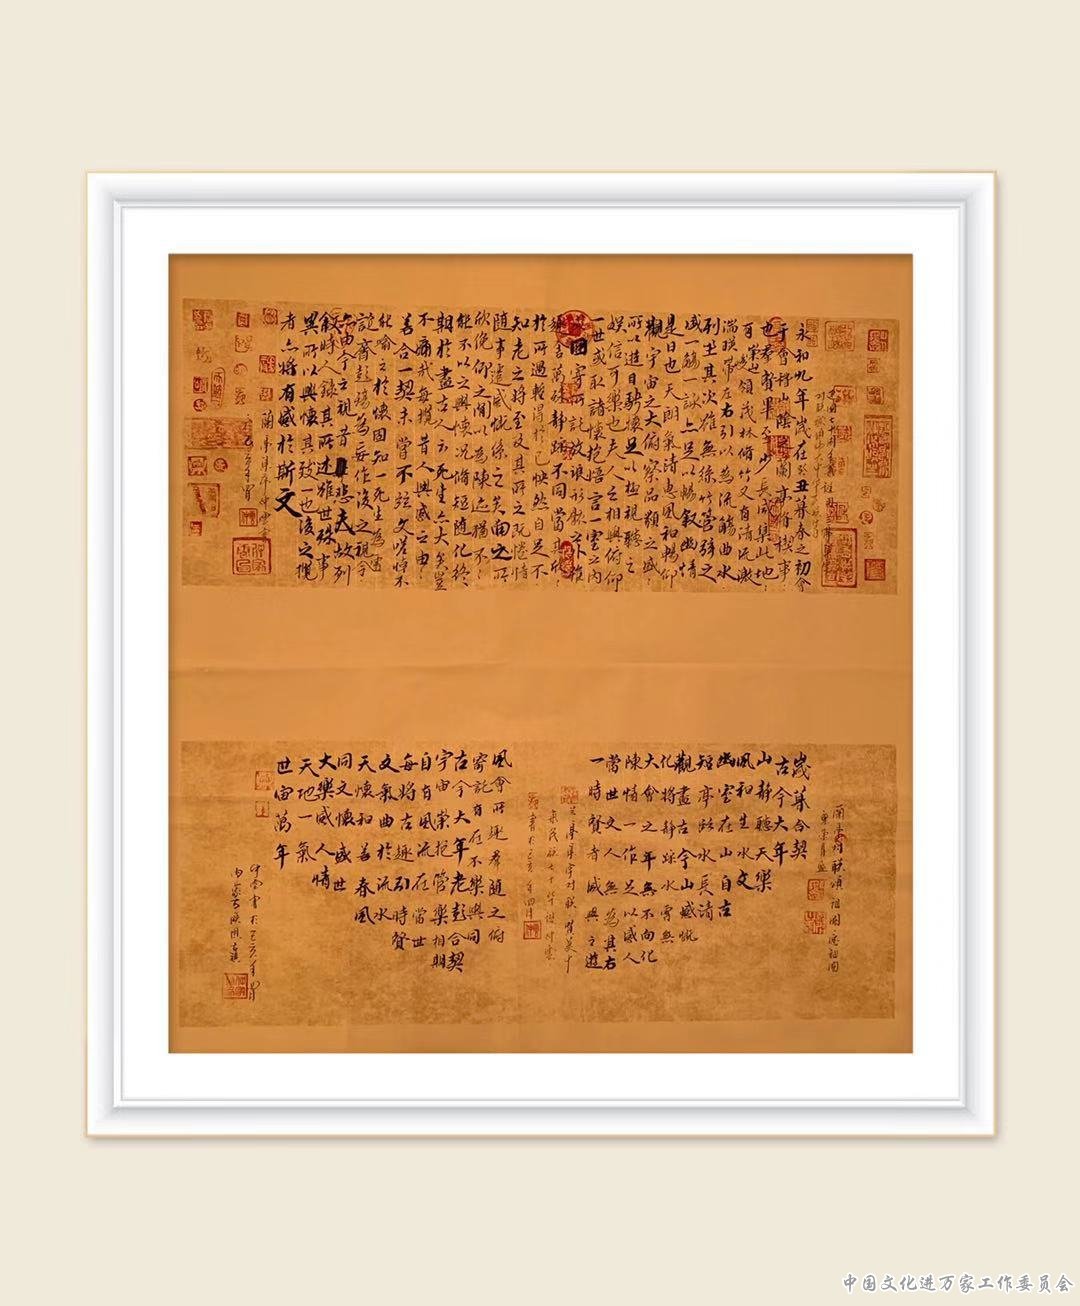 永和九年歲在癸丑暮春之初會
于會稽山陰之蘭亭脩稧事
也羣賢畢至少長咸集此地
有峻領茂林脩竹又有清流激
湍暎帶左右引以為流觴曲水
列坐其次雖無絲竹管弦之
盛一觴一詠亦足以暢敘幽情
是日也天朗氣清惠風和暢仰
觀宇宙之大俯察品類之盛
所以遊目騁懷足以極視聽之
娛信可樂也夫人之相與俯仰
一世或取諸懷抱悟言一室之內
或因寄所託放浪形骸之外雖
趣舍萬殊靜躁不同當其欣
於所遇輒得於己快然自足不
知老之將至及其所之既惓情
隨事遷感慨係之矣向之所
欣俛仰之閒以為陳迹猶不
能不以之興懷況脩短隨化終
期於盡古人云死生亦大矣豈
不痛哉每攬昔人興感之由
若合一契未嘗不臨文嗟悼不
能喻之於懷固知一死生為虛
誕齊彭殤為妄作後之視今
亦由今之視昔悲夫故列
敘時人錄其所述雖世殊事
異所以興懷其致一也後之攬
者亦將有感於斯文
歲暮合契
古今大年
山靜聽天樂
風和生水文
幽室在山自古
短亭臨水長清
觀盡古今山感慨
化將靜躁水
大會之年無不向化
陳情一作足以感人
當世文人無為其右
一時賢者咸與之遊
風會所趣羣隨之俯
寄託有在不樂與同
古今大年老彭合契
宇宙崇抱管樂相期
自有風流在當世
每將古趣引時賢
文氣曲於流水
天懷和若春風
同文懷盛世
大樂感人情
天地一氣
世宙萬年
中国文化进万家工作委员会